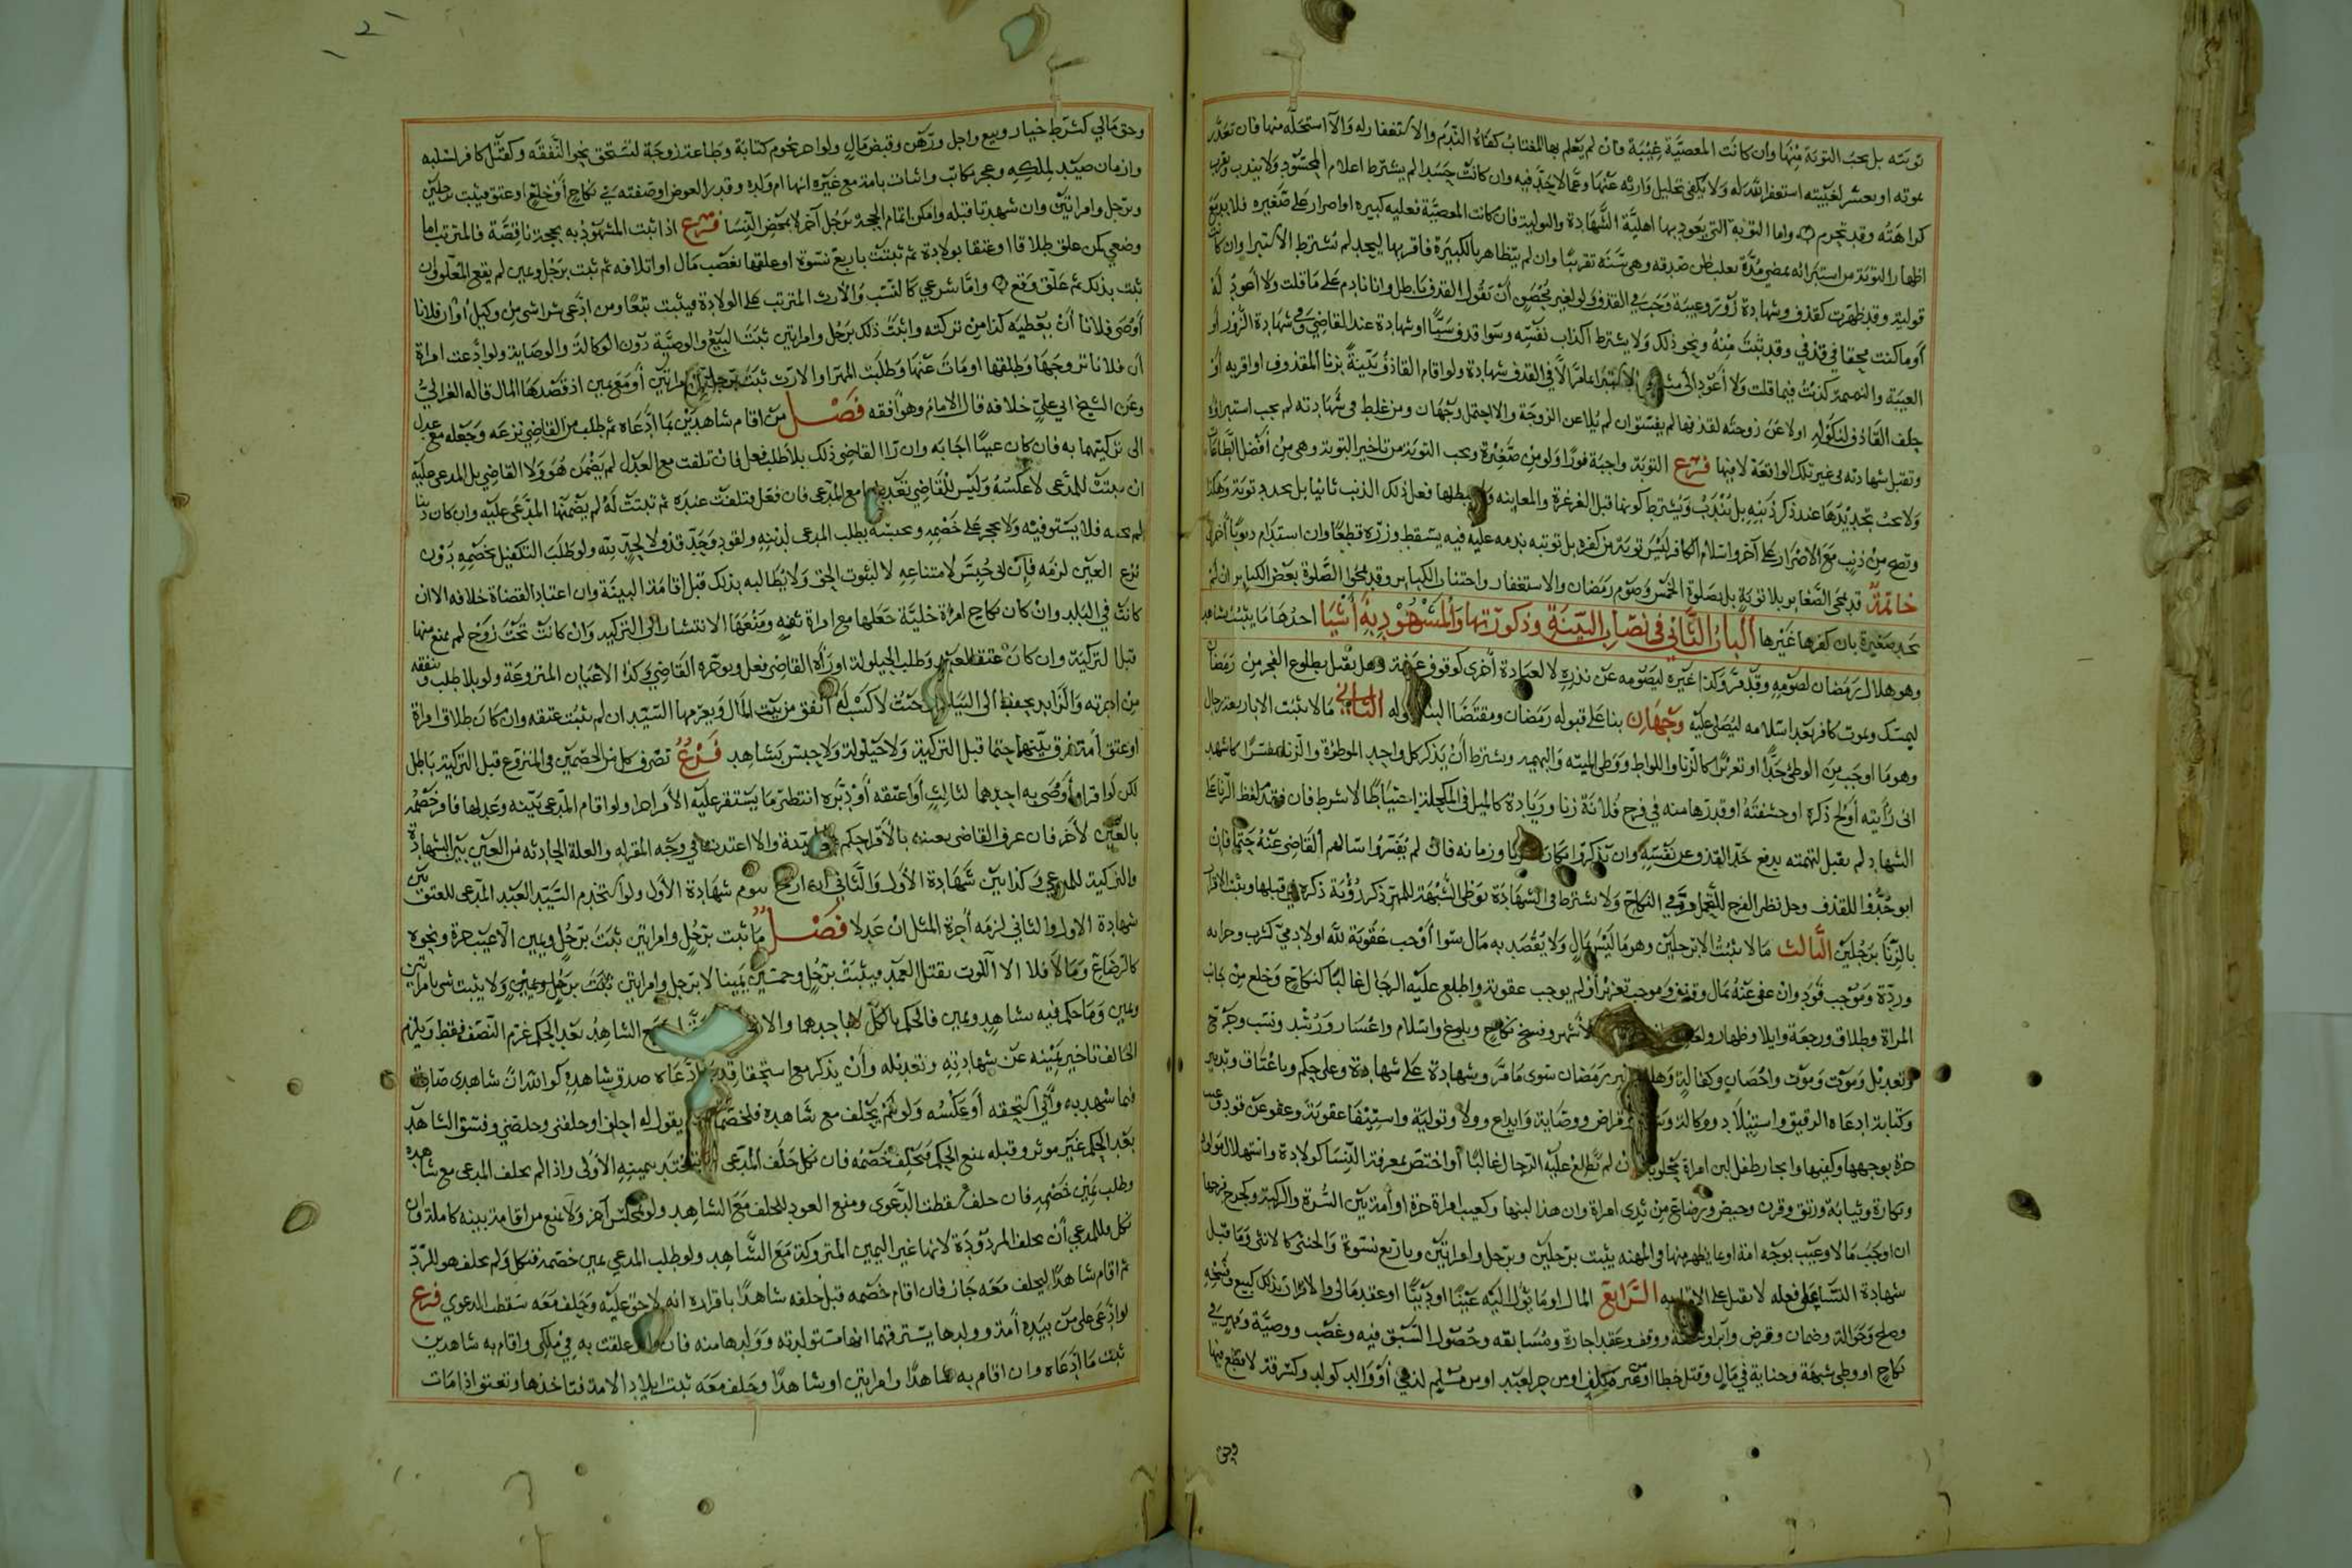 توبته بل يجب التوبة منها وان كانت المعصية غيبة فان لم يعلم بها المغتاب كفاه الندم والاستغفار له والا استحله منها فان تعذر
بموته او بعسر لغيبته استغفر الله له ولا يكفي تحليل وارثه عنها وعما لا يحد فيه وان كانت حسدا لم يشترط اعلام المحسود ولا يندب
كراهته وقد تحرم واما التوبة التي يعود بها اهلية الشهادة والولاية فان كانت المعصية فعلية كبيرة او اصرار على صغيرة فلا بد مع
اظهار التوبة من استبرائه بمضي مدة يغلب ظن صدقه وهي سنة تقريبا وان لم يتظاهر بالكبيرة فاقر بها ليحد لم يشترط الاستبرا وان كانت
قولية وقد ظهرت كقذف وشهادة زور وغيبة وجب في القذف ولو لغير محصن ان يقول القذف باطل وانا نادم على ما قلت ولا اعود له
او ما كنت محقا في قذفي وقد تبت منه ونحو ذلك ولا يشترط اكذاب نفسه وسوا قذف سبا او شهادة عند القاضي وفي شهادة الزور او
الغيبة والنميمة كذبت فيما قلت ولا اعود الى مثله الاستبرا عاما لا في القذف شهادة ولو اقام القاذف بينة بزنا المقذوف او اقر به او
حلف القاذف لنكوله او لاعن زوجته لقذفها لم يفسق وان لم يلاعن الزوجة والا احتمل وجهان ومن غلط في شهادته لم يجب استبراؤه
وتقبل شهادته في غير تلك الواقعة لا فيها فرع التوبة واجبة فورا ولو من صغيرة ويجب التوبة من تاخير التوبة وهي من افضل الطاعات
ولا يجب تجديدها عند ذكر ذنبه بل يندب ويشترط كونها قبل الغرغرة والمعاينة ولا يبطلها فعل ذلك الذنب ثانيا بل يجدد توبة وهكذا
وتصح من ذنب مع الاصرار على آخر واسلام الكافر ليس توبة من كفره بل توبته ندمه عليه فيه يسقط وزره قطعا وان استدام
خاتمة قد تمحى الصغاير بلا توبة بل بصلوة الخمس وصوم رمضان والاستغفار واجتناب الكباير وقد تمحوا الصلوة بعض الكباير ان لم
يجد صغيرة بان كفرها غيرها الباب الثاني في نصاب البينة وذكورتها والمشهود به اشيا احدها ما يثبت بشاهد
وهو هلال رمضان لصومه وقد مر وكذا غيره ليصومه عن نذره لا لعبادة اخرى كوقوف عرفة وهل يقبل بطلوع الفجر من رمضان
ليمسك وبموت كافر بعد اسلامه ليصلى عليه وجهان بنا على قبوله رمضان ومقتضا البنا قبوله الثاني ما لا يثبت الا باربعة رجال
وهو ما اوجب من الوطئ حدا او تعزيرا كالزنا واللواط ووطي الميته والبهيمه ويشترط ان يذكر كل واحد الموطؤة والزنا مفسرا كاشهد
اني رأيته اولج ذكره او حشفته او قدرها منه في فرج فلانة زنا وزيادة كالميل في المكحلة احتياطا لا شرط فان فقد لفظ الزنا على
الشهاد لم يقبل لتهمته بدفع حد القذف عن نفسه وان يذكروا مكان الزنا وزمانه فان لم يفسروا سالهم القاضي عنه حتما فان
ابو حدوا للقذف وحل نظر الفرج للتحمل مر في النكاح ولا يشترط في الشهادة بوطي الشبهة للمهر ذكر رؤية ذكره في قبلها ويثبت الاقرار
بالزنا برجلين الثالث ما لا يثبت الا برجلين وهو ما ليس بمال ولا يقصد به مال سوا اوجب عقوبة لله او لادمي كشرب وحرابه
وردة وموجب قود وان عفى عنه بمال وقذف وموجب تعزير او لم يوجب عقوبة واطلع عليه الرجال غالبا كنكاح وخلع من جانب
المراة وطلاق ورجعة وايلا وظهار ولعان الاشهر وفسخ نكاح وبلوغ واسلام واعسار ورشد ونسب وجرح
وتعديل وموت وموت واحصان وكفالة وهلال غير رمضان سوى ما مر وشهادة على شهادة وعلى حكم وباعتاق وتدبير
وكتابة ادعاه الرقيق واستيلاد ووكالة وقراض ووصاية وايداع وولا وتولية واستيفا عقوبة وعفو عن قود
حرة بوجهها وكفيها وايجار طفل لبن امراة محلوبا وان لم تطلع عليه الرجال غالبا او اختص بمعرفته النسا كولادة واستهلال مولود
وبكارة وثيابة ورتق وقرن وحيض ورضاع من ثدي امراة وان هذا لبنها وكعيب امراة حرة او امة بين السرة والركبة وكجرح فرجها
ان اوجب مالا وعيب بوجه امة او ما يظهر منها في المهنة يثبت برجلين وبرجل وامراتين وباربع نسوة والخنثى كالانثى وما قبل
شهادة النسا على فعله لا يقبل على الاقرار به الرابع المال او ما يؤل اليه عينا او دينا او عقد مالي والاقرار بذلك كبيع وفسخه
وصلح وحوالة وضمان وقرض وابرا ووقف وعقد اجارة ومسابقة وحصول السبق فيه وغصب ووصية ومهر في
نكاح او وطي شبهة وجناية في مال وقتل خطا او من غير مكلف او من حر لعبد او من مسلم لذمي او والد كولد وكسرقة لا قطع فيها
وحق
وحق مالي كشرط خيار وبيع واجل ورهن وقبض مال ولو اخر نجوم كتابة وطاعة زوجة لتستحق نحو النفقة وكقتل كافر لسلبه
وازمان صيد لملكه وعجز مكاتب واثبات بامة مع غيره انها ام ولده وقدر العوض او صفته في نكاح او خلع او عتق فيثبت برجلين
وبرجل وامراتين وان شهدتا قبله وامكن اتمام الحجة برجل آخر لا بمحض النسا فرع اذا ثبت المشهود به بحجة ناقصة فالمترتب اما
وضعي كمن علق طلاقا او عتقا بولادة ثم ثبتت باربع نسوة او علقها بغصب مال او اتلافه ثم ثبت برجل ويمين لم يقع المعلق وان
ثبت بذلك ثم علق وقع واما شرعي كالنسب والارث المترتب على الولادة فيثبت تبعا ومن ادعى شرا شي من وكيل او ان فلانا
اوصى فلانا ان يعطيه كذا من تركته واثبت ذلك برجل وامراتين ثبت البيع والوصية دون الوكالة والوصاية ولو ادعت امراة
ان فلانا تزوجها وطلقها او مات عنها وطلبت المهر او الارث ثبت برجل وامراتين او مع يمين اذ قصدها المال قاله الغزالي
وعن الشيخ ابي علي خلافه قال الامام وهو افقه فصل من اقام شاهدين بما ادعاه ثم طلب من القاضي نزعه وجعله مع عدل
الى تزكيتهما به فان كان عينا اجابه وان راا القاضي ذلك بلا طلب فعل فان تلفت مع العدل لم يضمن هو ولا القاضي بل المدعى عليه
ان ثبتت للمدعي لا عكسه وليس للقاضي تعديلها مع المدعي فان فعل وتلفت عنده ثم ثبتت له لم يضمنها المدعى عليه وان كان دينا
لم يجبه فلا يستوفيه ولا يحجر على خصمه وحبسه بطلب المدعي لدينه ولقود وحد قذف لا لحد لله ولو طلب التكفيل بخصمه دون
نزع العين لزمه فان ابى حبس لامتناعه لا لثبوت الحق ولا يطالبه بذلك قبل اقامة البينة وان اعتاد القضاة خلافه الا ان
كانت في البلد وان كان نكاح امراة خلية جعلها مع امراة ثقة ومنعها الانتشار الى التزكيه وان كانت تحت زوج لم يمنع منها
قبل التزكية وان كان عتق العبد وطلب الحيلولة او رآه القاضي فعل ويوجره القاضي وكذا الاعيان المنزوعة ولو بلا طلب وينفقه
من اجرته والزايد يحفظ الى السيد وحيث لا كسب له انفق من بيت المال ويغرمها السيد ان لم يثبت عتقه وان كان طلاق امراة
او عتق امة فرق بينهما حتما قبل التزكية ولا حيلولة ولا حبس بشاهد فرع تصرف كل من الخصمين في المنزوع قبل التزكية باطل
لكن لو اقر او اوصى به احدهما لثالث او اعتقه او دبره انتظر ما يستقر عليه الامر اخرا ولو اقام المدعي بينة وعدلها فاقر خصمه
بالعين لآخر فان عرف القاضي تعنته بالاقرار حكم والا اعتد بها في وجه المقر له والعلة الحادثه من العين بين الشهادة
والتزكية للمدعي وكذا بين شهادة الاول والثاني ان ارخ بيوم شهادة الاول ولو استخدم السيد العبد المدعي للعتق بين
شهادة الاول والثاني لزمه اجرة المثل ان عدلا فصل ما ثبت برجل وامراتين ثبت برجل ويمين الا عيب حرة ونحوه
كالرضاع وما لا فلا الا اللوث بقتل العمد فيثبت برجل وخمسين يمينا لا برجل وامراتين ثبت برجل ويمين ولا يثبت شي بامراتين
ويمين وما حكم فيه بشاهد ويمين فالحكم بالكل لا باحدهما الشاهد بعد الحكم غرم النصف فقط ويلزم
الحالف تاخير يمينه عن شهادته وتعديله وان يذكر مع استحقاقه ادعاه صدق شاهده كوالله ان شاهدي صادق
فيما شهد به واني استحقه او عكسه ولو لم يحلف مع شاهده فلخصمه يقول له احلف او حلفني وخلصني وفسق الشاهد
بعد الحكم غير موثر وقبله يمنع الحكم فيحلف خصمه فان نكل حلف المدعي بيمينه الاولى واذا لم يحلف المدعي مع شاهده
وطلب يمين خصمه فان حلف سقطت الدعوى ومنع العود للحلف مع الشاهد ولو بمجلس آخر ولا يمنع من اقامة بينه كاملة وان
نكل فللمدعي ان يحلف المردودة لانها غير اليمين المتروكة مع الشاهد ولو طلب المدعي يمين خصمه فنكل ولم يحلف هو للرد
ثم اقام شاهدا ليحلف معه جاز فان اقام خصمه قبل حلفه شاهدا باقراره انه لا حق عليه وحلف معه سقطت الدعوى فرع
لو ادعى على من بيده امة وولدها يسترقهما انها مستولدته وولدها منه علقت به في ملكي واقام به شاهدين
ثبت ما ادعاه وان اقام به شاهدا وامراتين او شاهدا وحلف معه ثبت ايلاد الامة فتاخذها وتعتق اذا مات